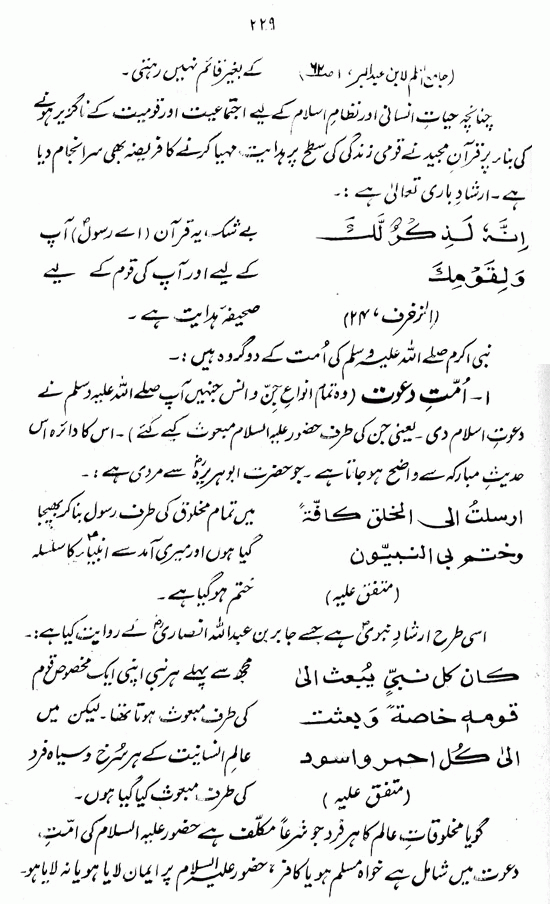 ۲۲۹
(جامع العلم لابن عبدالبر، ۱ صـ ۶۲) کے بغیر قائم نہیں رہتی ۔
چنانچہ حیاتِ انسانی اور نظامِ اسلام کے لیے اجتماعیت اور قومیت کے ناگزیر ہونے
کی بناء پر قرآن مجید نے قومی زندگی کی سطح پر ہدایت مہیا کرنے کا فریضہ بھی سرانجام دیا
ہے ۔ ارشادِ باری تعالیٰ ہے :۔
اِنَّهٗ لَذِكْرٌ لَّكَ بے شک، یہ قرآن (اے رسولؐ) آپ
وَلِقَوْمِكَ کے لیے اور آپ کی قوم کے لیے
(الزخرف، ۴۴) صحیفۂ ہدایت ہے ۔
نبی اکرم صلے اللہ علیہ وسلم کی اُمت کے دو گروہ ہیں :۔
۱۔ اُمّتِ دعوت (وہ تمام انواعِ جن و انس جنہیں آپ صلے اللہ علیہ وسلم نے
دعوتِ اسلام دی ۔ یعنی جن کی طرف حضور علیہ السلام مبعوث کیے گئے)۔ اس کا دائرہ اس
حدیثِ مبارکہ سے واضح ہو جاتا ہے ۔ جو حضرت ابوہریرہؓ سے مروی ہے :۔
ارسلتُ الی الخلق کافّۃً میں تمام مخلوق کی طرف رسول بنا کر بھیجا
وختم بی النبیّون گیا ہوں اور میری آمد سے انبیاءؑ کا سلسلہ
(متفق علیہ) ختم ہو گیا ہے ۔
اسی طرح ارشادِ نبویؐ ہے جسے جابر بن عبداللہ انصاریؓ نے روایت کیا ہے :۔
کان کل نبیٍّ یُبعث الیٰ مجھ سے پہلے ہر نبی اپنی ایک مخصوص قوم
قومہٖ خاصۃً وَ بعثت کی طرف مبعوث ہوتا تھا ۔ لیکن میں
الیٰ کُل احمر و اسود عالمِ انسانیت کے ہر سُرخ و سیاہ فرد
(متفق علیہ) کی طرف مبعوث کیا گیا ہوں ۔
گویا مخلوقاتِ عالم کا ہر فرد جو شرعاً مکلّف ہے حضور علیہ السلام کی امّتِ
دعوت میں شامل ہے خواہ مسلم ہو یا کافر، حضور علیہ السلام پر ایمان لایا ہو یا نہ لایا ہو۔